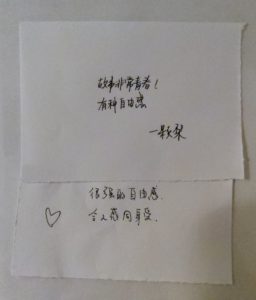 故事非常青春！
有种自由感
一颗栞
很强的自由感.
令人感同身受.